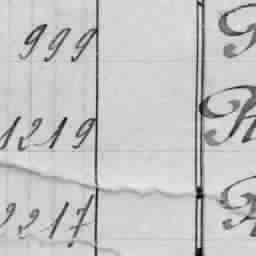 999
1219
2217